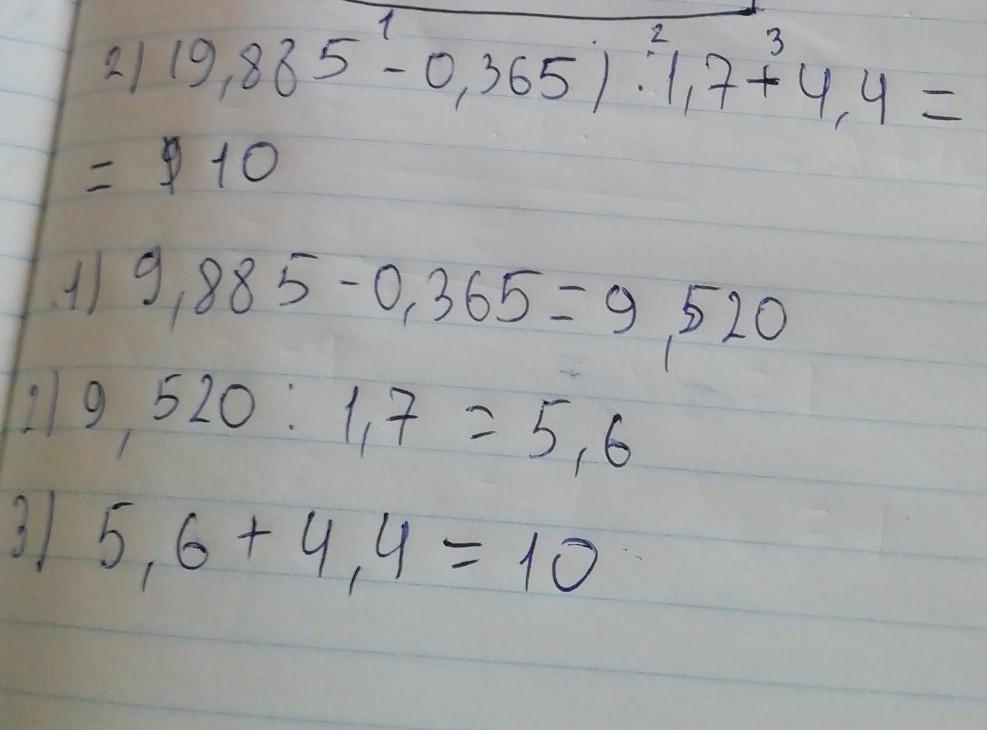 1 2 3
2) (9,885 - 0,365) : 1,7 + 4,4 =
= 10
1) 9,885 - 0,365 = 9,520
2) 9,520 : 1,7 = 5,6
3) 5,6 + 4,4 = 10